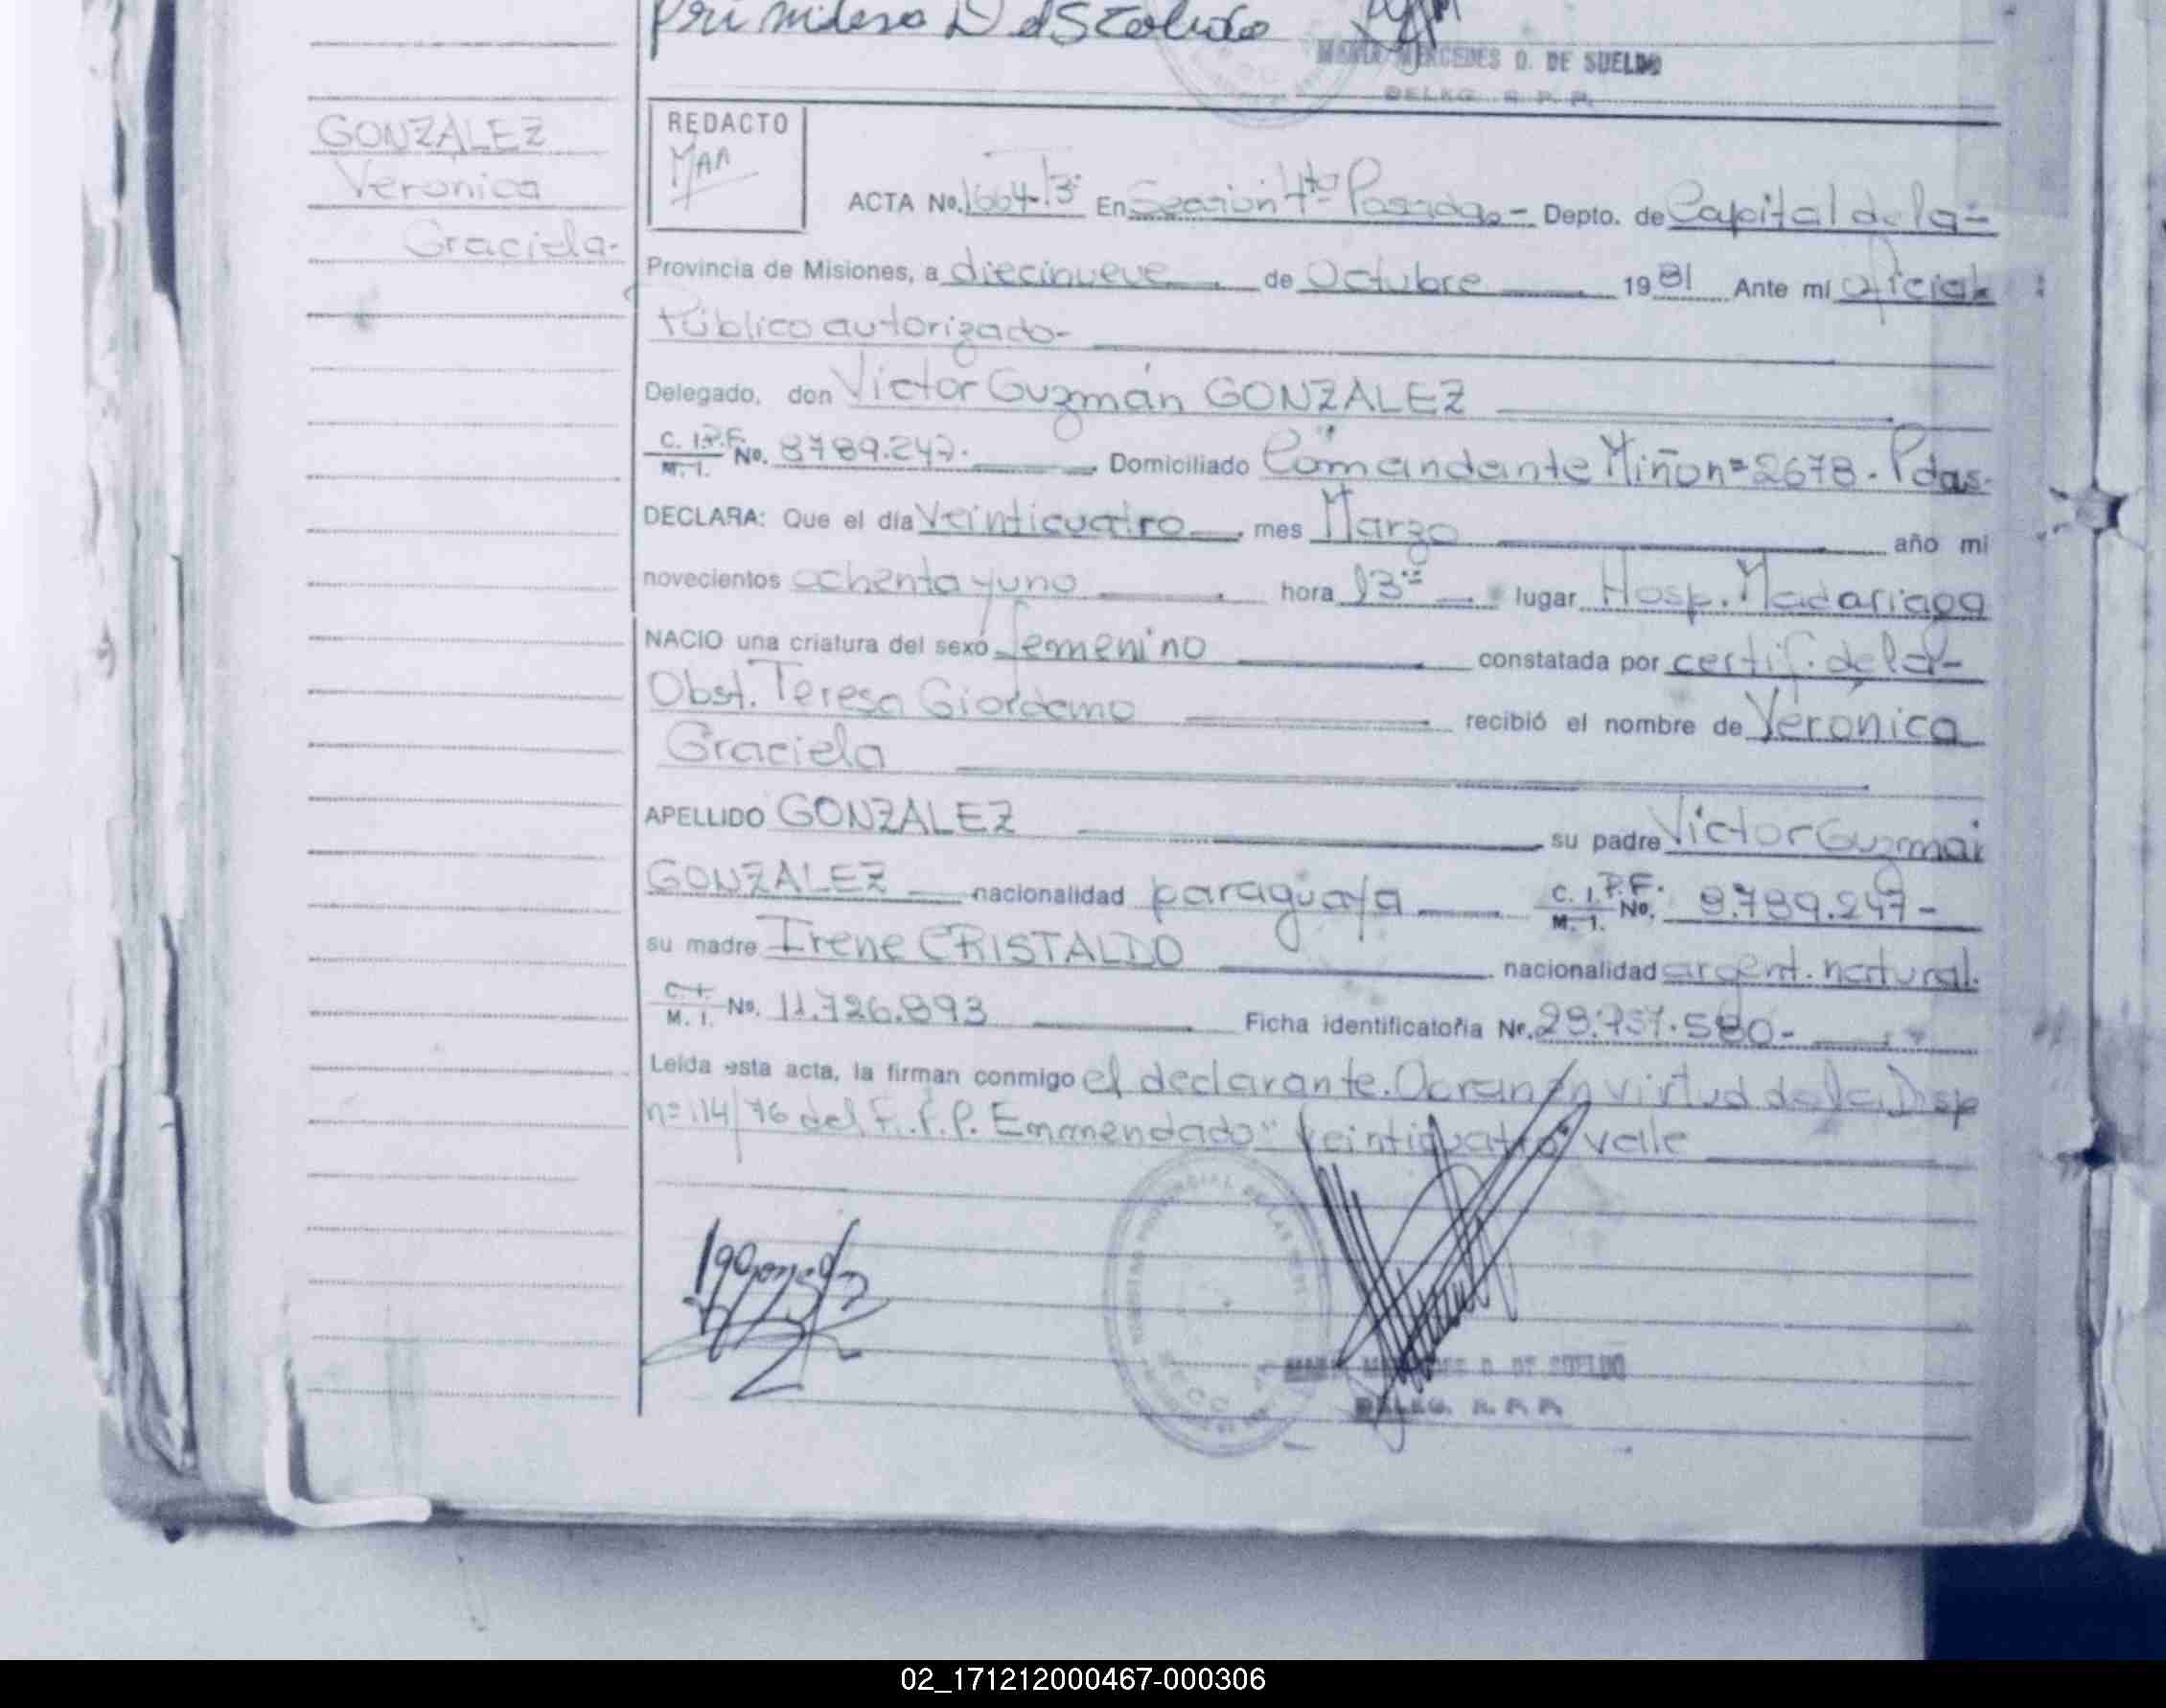 MARIA MERCEDES D. DE SUELDO
DELEG. R. P. P.
GONZALEZ
Veronica
Graciela-
REDACTO
ACTA No. 1664-13° En Sección 4ta Posadas- Depto. de Capital de la-
Provincia de Misiones, a diecinueve de Octubre 1981 Ante mí oficial
Público autorizado-
Delegado, don Victor Guzmán GONZALEZ
C. I.P.F. No. 8789.247. Domiciliado Comandante Miño n=2678. Pdas.
M. I.
DECLARA: Que el día veinticuatro mes Marzo año mi
novecientos ochenta y uno hora 13 lugar Hosp. Madariaga
NACIO una criatura del sexo femenino constatada por certif. de la-
Obst. Teresa Giordano recibió el nombre de Verónica
Graciela
APELLIDO GONZALEZ su padre Victor Guzmai
GONZALEZ nacionalidad paraguaya C. I.P.F. No. 8.789.247-
M. I.
su madre Irene CRISTALDO nacionalidad argent. natural.
C. I.
M. I. No. 11.726.893 Ficha identificatoria Nr. 28.757.580-
Leída esta acta, la firman conmigo el declarante. en virtud de la Disp
n=114/76 del Emmendado "veinticuatro" valle
MARIA MERCEDES D. DE SUELDO
DELEG. R. P. P.
02_171212000467-000306